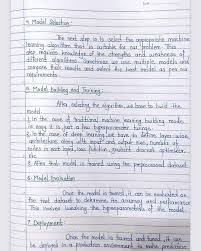 4. Model Selection:
The next step is to select the appropriate machine
learning algorithm that is suitable for our problem. This
step requires knowledge of the strengths and weakness of
different algorithms. Sometimes we use multiple models and
compare their results and select the best model as per our
requirements.
5. Model building and Training:
After selecting the algorithm, we have to build the
model.
1. In the case of traditional machine learning building mode
is easy it is just a few hyperparameter tunings.
2. In the case of deep learning we have to define layer-wise
architecture along with input and output size, number of
nodes in each layer, loss function, gradient descent optimizer,
etc.
3. After that model is trained using the preprocessed dataset.
6. Model Evaluation
Once the model is trained, it can be evaluated on
the test dataset to determine its accuracy and performance
This involves tweaking the hyperparameters of the model.
7. Deployment:
Once the model is trained and tuned, it can
be deployed in a production environment to make prediction